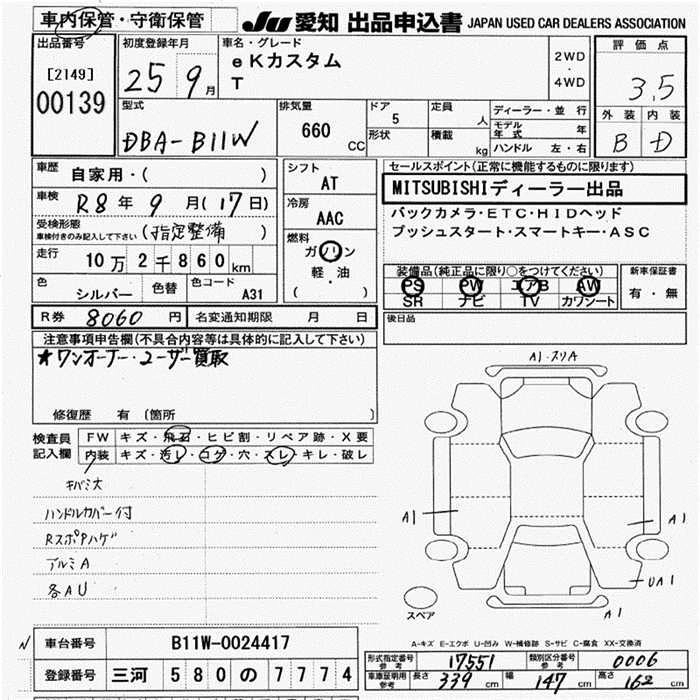 車内保管・守衛保管
JU 愛知 出品申込書 JAPAN USED CAR DEALERS ASSOCIATION
出品番号
[2149]
00139
初度登録年月
25年9月
車名・グレード
eKカスタム
T
2WD
・
4WD
評価点
3.5
外装 内装
B D
型式
DBA-B11W
排気量
660 CC
ドア
5
形状
定員
人
積載
kg
ディーラー・並行
モデル年式 年
ハンドル 左・右
車歴
自家用・( )
車検
R8年9月(17日)
受検形態
車検付きのみ記入して下さい
(指定整備)
走行
10万2千860km
色
シルバー
色替
色コード
A31
シフト
AT
冷房
AAC
燃料
ガソリン
軽・油
( )
セールスポイント(正常に機能するものに限ります)
MITSUBISHIディーラー出品
バックカメラ・ETC・HIDヘッド
プッシュスタート・スマートキー・ASC
装備品(純正品に限り○をつけてください)
PS PW エアB AW
SR ナビ TV カワシート
新車保証書
有・無
R券 8060円
名変通知期限 月 日
後日品
注意事項申告欄(不具合内容等は具体的に記入して下さい)
★ワンオーナー・ユーザー買取
修復歴 有 (箇所 )
検査員
記入欄
FW キズ・飛石・ヒビ割・リペア跡・X要
内装 キズ・汚レ・コゲ・穴・スレ・キレ・破レ
キバミ大
ハンドルカバー付
RスポPハゲ
アルミA
各AU
A1・スリA
A1
A1
UA1
A1
スペア
A-キズ E-エクボ U-凹み W-補修跡 S-サビ C-腐食 XX-交換済
車台番号 B11W-0024417
登録番号 三河 580 の 7774
型式指定番号
参考
17551
類別区分番号
参考
0006
車庫証明用
参考
長さ 339cm
幅 147cm
高さ 162cm